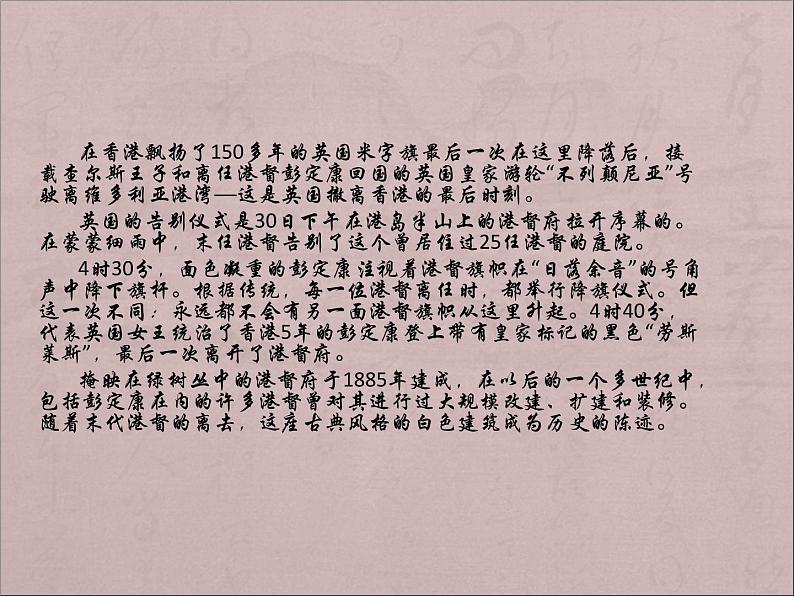 在香港飘扬了150多年的英国米字旗最后一次在这里降落后，接
载查尔斯王子和离任港督彭定康回国的英国皇家游轮“不列颠尼亚”号
驶离维多利亚港湾—这是英国撤离香港的最后时刻。
英国的告别仪式是30日下午在港岛半山上的港督府拉开序幕的。
在蒙蒙细雨中，末任港督告别了这个曾居住过25任港督的庭院。
4时30分，面色凝重的彭定康注视着港督旗帜在“日落余音”的号角
声中降下旗杆。根据传统，每一位港督离任时，都举行降旗仪式。但
这一次不同：永远都不会有另一面港督旗帜从这里升起。4时40分，
代表英国女王统治了香港5年的彭定康登上带有皇家标记的黑色“劳斯
莱斯”，最后一次离开了港督府。
掩映在绿树丛中的港督府于1885年建成，在以后的一个多世纪中，
包括彭定康在内的许多港督曾对其进行过大规模改建、扩建和装修。
随着末代港督的离去，这座古典风格的白色建筑成为历史的陈迹。